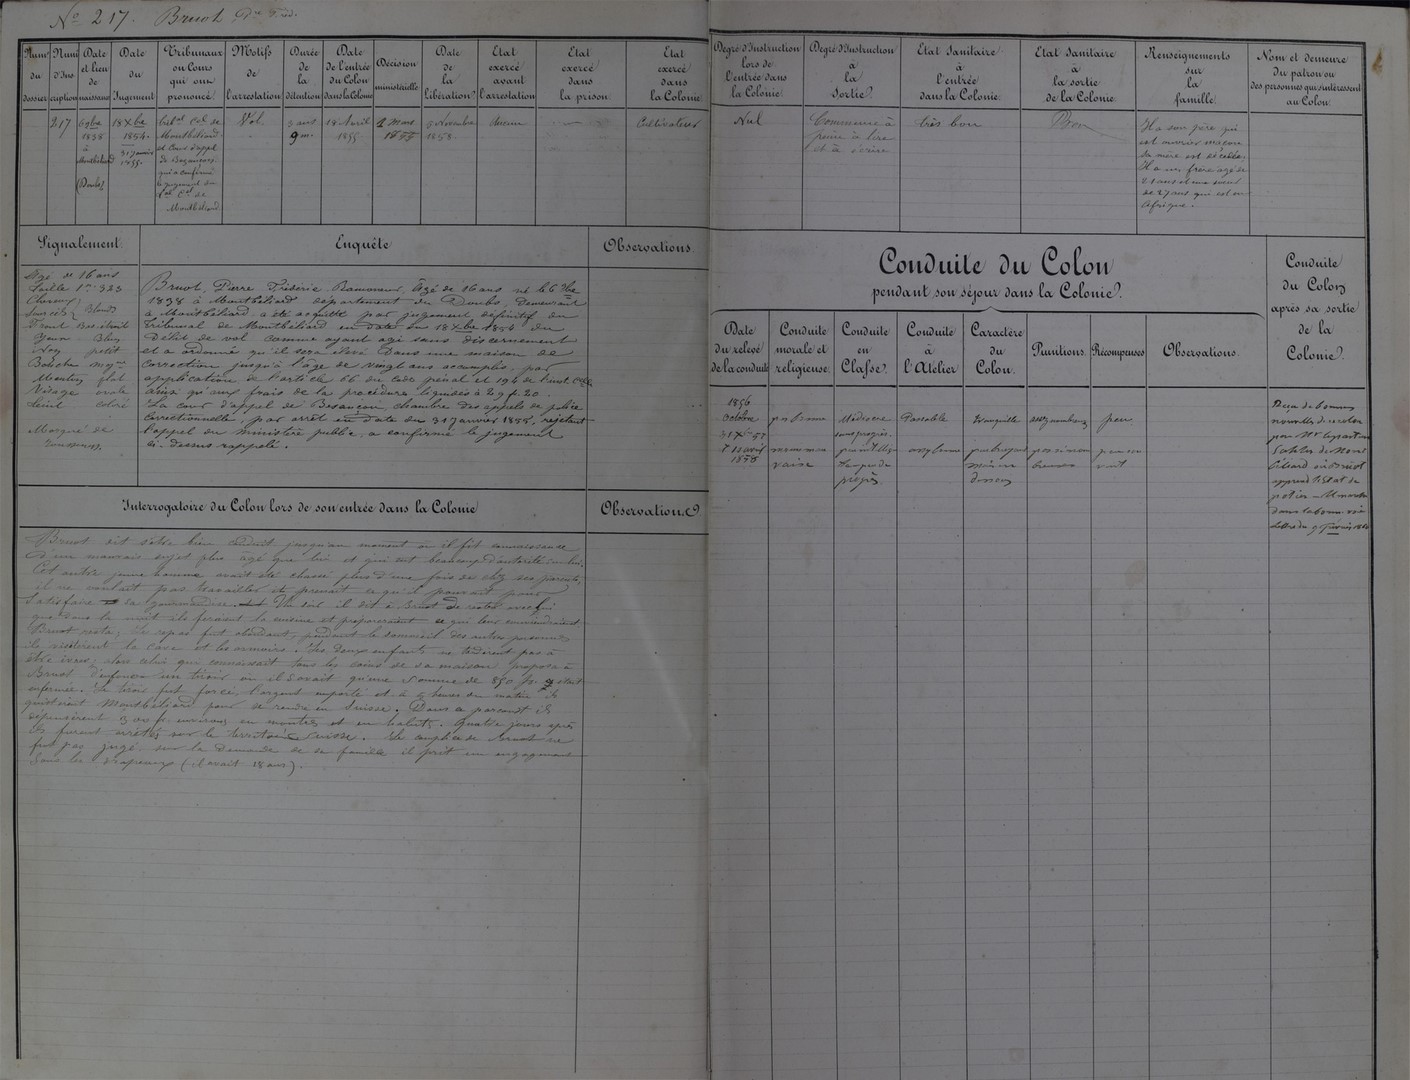 No 217. Bruot Pre Fréd.
Numo du dossier
Num d'Inscription
Date et lieu de naissance
Date du Jugement
Tribunaux ou Cours qui ont prononcé
Motifs de l'arrestation
Durée de la détention
Date de l'entrée du Colon dans la Colonie
Décision ministérielle
Date de la libération
Etat exercé avant l'arrestation
Etat exercé dans la prison
Etat exercé dans la Colonie
Degré d'Instruction lors de l'entrée dans la Colonie.
Degré d'Instruction à la Sortie.
Etat Sanitaire à l'entrée dans la Colonie.
Etat Sanitaire à la sortie de la Colonie.
Renseignements sur la famille.
Nom et demeure du patron ou des personnes qui s'intéressent au Colon.
217
6 9bre 1838 à Montbéliard (Doubs)
18 Xbre 1854. 31 janvier 1855.
et Cour d'appel de Besançon qui a confirmé le jugement du de Montbéliard
Vol.
3 ans 9 m.
18 Avril 1855
2 Mars 1855
5 Novembre 1858.
Aucun
Cultivateur
Nul
Commence à lire et à écrire
très bon
Bon
Il a son père qui
est ouvrier maçon
Sa mère est décédée.
Il a un frère agé de
21 ans et une soeur
de 27 ans qui est en
Afrique.
Signalement.
Enquête
Observations.
Agé de 16 ans
Taille 1m 323
Cheveux
Sourcils Blonds
Front
Yeux Bleus
Nez petit
Bouche moyne
Menton plat
Visage ovale
Teint coloré
Marqué de
Bruot, Pierre Frédéric, Agé de 16 ans né le 6 9bre
1838 à Montbéliard département du Doubs, demeurant
à Montbéliard a été acquitté par jugement définitif du
tribunal de Montbéliard en date du 18 Xbre 1854 du
délit de vol comme ayant agi sans discernement
et a ordonné qu'il sera élevé dans une maison de
correction jusqu'à l'âge de vingt ans accomplis, par
application de l'article 66 du code pénal et 194 de l'inst. Clle
ainsi qu'aux frais de la procédure liquidés à 29 fr. 20.
La cour d'appel de Besançon, chambre des appels de police
correctionnelle, par arrêt en date du 31 janvier 1855, rejetant
l'appel du ministère public, a confirmé le jugement
ci-dessus rappelé.
Conduite du Colon
pendant son séjour dans la Colonie.
Conduite du Colon après sa sortie de la Colonie.
Date du relevé de la conduite
Conduite morale et religieuse.
Conduite en Classe.
Conduite à l'Atelier
Caractère du Colon.
Punitions.
Récompenses
Observations.
1856
Octobre
pas Bonne
Médiocre
Passable
tranquille
assez nombreuses
peu
31 Xbre 57
sans progrès.
avril 1858
mauvaise
peu intelligent
assez bonne
progrès
Reçu de bonnes
nouvelles de ce colon
par Mr
Bruot
apprend l'état de
potier
dans la bonne voie
lettre du 9 février
Interrogatoire du Colon lors de son entrée dans la Colonie
Observations.
Bruot dit s'être bien conduit jusqu'au moment où il fit connaissance
d'un mauvais sujet plus âgé que lui et qui eut beaucoup d'autorité sur lui.
Cet autre jeune homme avait été chassé plus d'une fois de chez ses parents,
il ne voulait pas travailler et prenait ce qu'il pouvait pour
satisfaire sa gourmandise. Un soir il dit à Bruot de rester avec lui
que dans la nuit ils feraient la cuisine et prépareraient ce qui leur conviendrait
Bruot resta; le repas fut abondant, pendant le sommeil des autres personnes
ils visitèrent la cave et les armoires. Les deux enfants ne tardèrent pas à
être ivres; alors celui qui connaissait tous les coins de sa maison proposa à
Bruot d'enfoncer un tiroir où il savait qu'une somme de 850 fr. était
enfermée. Le tiroir fut forcé, l'argent emporté et à 5 heures du matin ils
quittèrent Montbéliard pour se rendre en Suisse. Dans ce parcours ils
dépensèrent 300 fr. environ en montres et en habits. Quatre jours après
ils furent arrêtés sur le territoire Suisse. Le complice de Bruot ne
fut pas jugé, sur la demande de sa famille il prit un engagement
sous les drapeaux (il avait 18 ans).